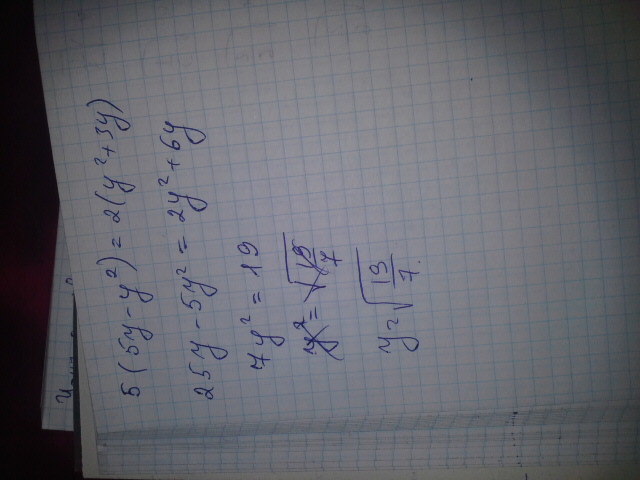 5(5y-y²)=2(y²+3y)
25y-5y²=2y²+6y
7y²=19
y=√19/7